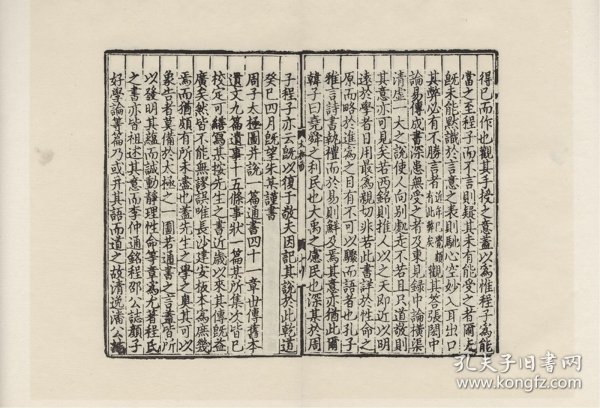 得已而作也觀其手授之意蓋以為惟程子為能
當之至程子而不言則疑其未有能受之者爾夫
既未能默識於言意之表則馳心空妙入耳出口
其弊必有不勝言者近年已覺頗有此弊矣觀其答張閎中
論易傳成書深患無受之者及東見錄中論橫渠
清虛一大之說使人向別處走不若且只道敬則
其意亦可見矣若西銘則推人以之天即近以明
遠於學者日用最為親切非若此書詳於性命之
原而略於進為之目有不可以驟而語者也孔子
雅言詩書執禮而於易則鮮及焉其意亦猶此爾
韓子曰堯舜之利民也大禹之慮民也深其於周
子程子亦云既以復于敬夫因記其說於此乾道
癸巳四月既望朱某謹書
周子太極圖并說一篇通書四十一章世傳舊本
遺文九篇遺事十五條事狀一篇其所集次皆已
校定可繕寫某按先生之書近歲以來其傳既益
廣矣然皆不能無謬誤唯長沙建安板本為庶幾
焉而猶頗有所未盡也蓋先生之學之奧其可以
象告者莫備於太極之一圖若通書之言蓋皆所
以發明其蘊而誠動靜理性命等章為尤著程氏
之書亦皆祖述其意而李仲通銘程邵公誌顏子
好學論等篇乃或并其語而道之故清逸潘公誌
孔夫子旧书网
www.kongfz.com